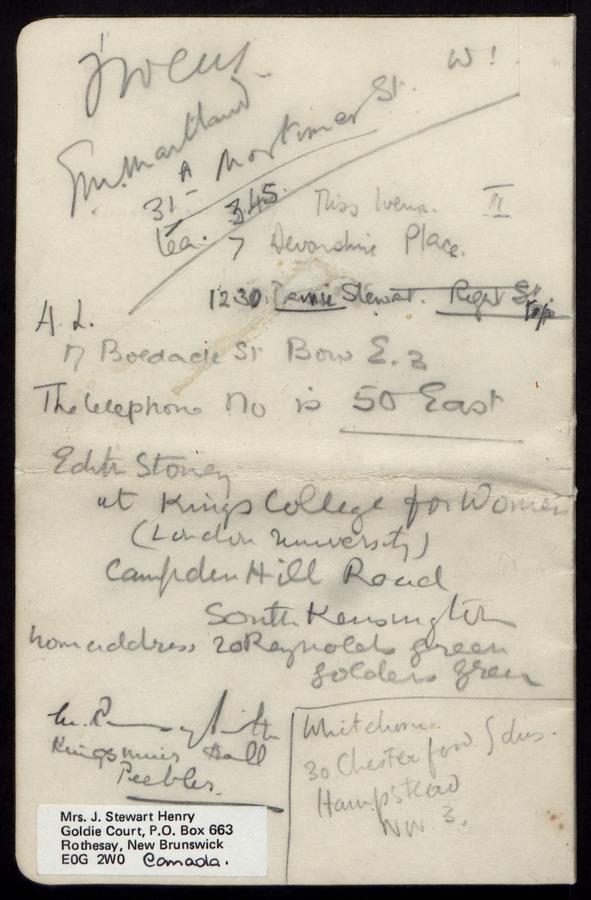 W1
31 A Mortimer St.
tea. 3.45. Miss Ivens. II
7 Devonshire Place.
12.30. Stewart.
H. L.
17 St Bow E. 3
The telephone No is 50 East
Edith Stoney
at Kings College for Women
(London University)
Campden Hill Road
South Kensington
home address 20 Reynolds green
golders green
Kingsmuir Hall
Peebles.
Whitehorn
30 Chesterford Gdns.
Hampstead
NW 3.
Mrs. J. Stewart Henry
Goldie Court, P.O. Box 663
Rothesay, New Brunswick
E0G 2W0 Canada.